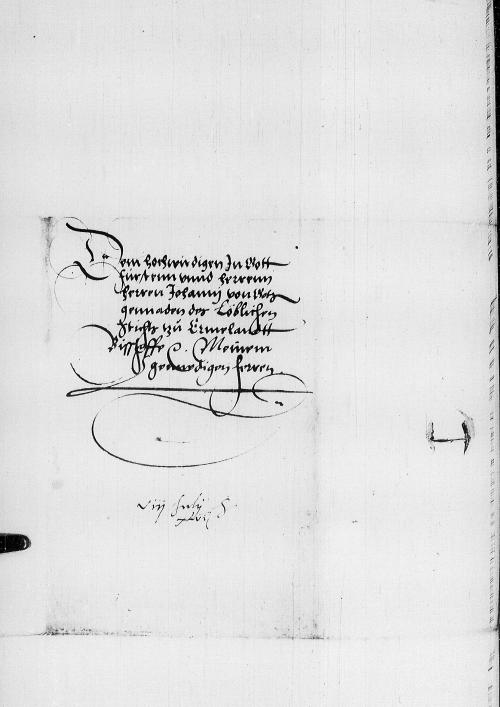 Dem hochwirdigen In Gott
fürstenn unnd herrenn
herren Johann von Gots
gennaden des Löblichen
Stiffts zu Ermelandtt
Bisschoffe Meinem
gnedigen herren
viij July